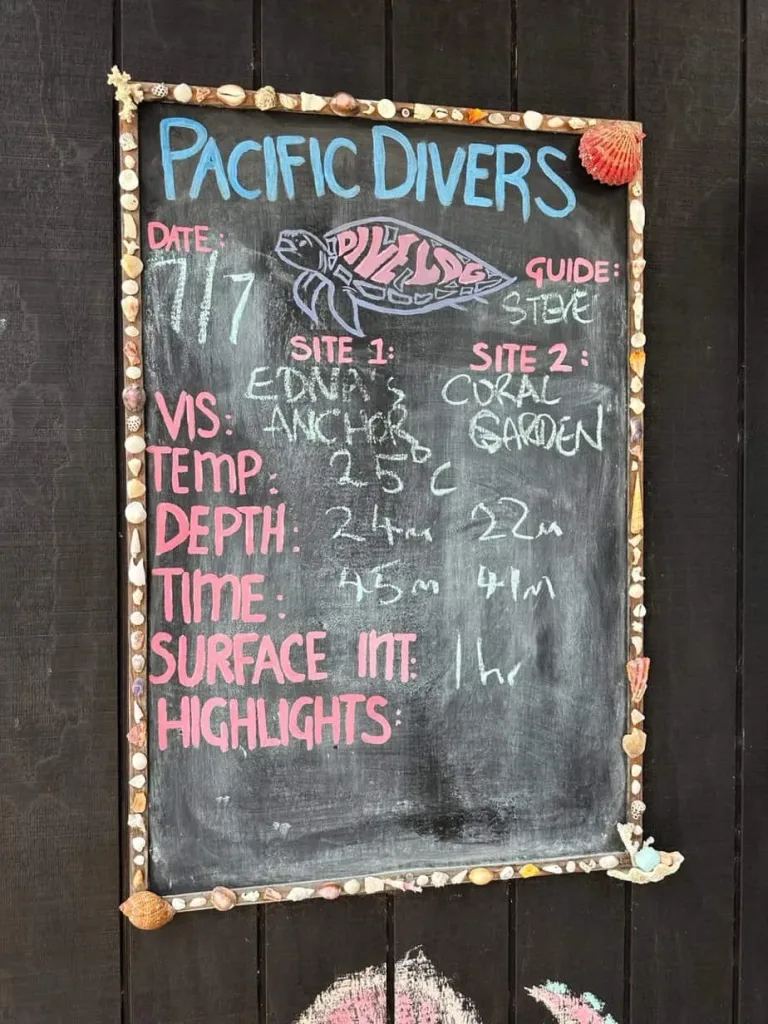 PACIFIC DIVERS
DATE:
DIVE LOG
7/7
GUIDE:
STEVE
SITE 1:
SITE 2:
EDNA'S
CORAL
VIS:
ANCHOR
GARDEN
TEMP: 25°C
DEPTH: 24m 22m
TIME: 45m 41m
SURFACE INT: 1hr
HIGHLIGHTS: